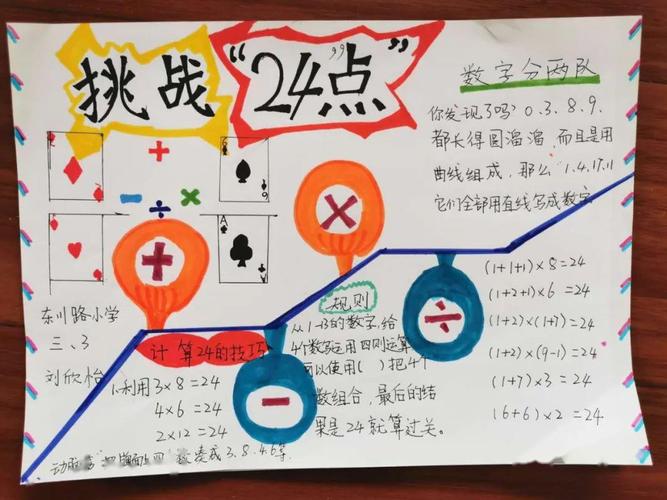 挑战“24点”
数字分两队
你发现了吗?0.3.8.9.
都长得圆溜溜,而且是用
曲线组成,那么1.4.17.11
它们全部用直线写成数字
6
9
A
+
-
×
÷
+
×
-
÷
东川路小学
三、3
刘欣怡
计算24的技巧
1.利用3×8=24
4×6=24
2×12=24
规则
从1-13的数字,给
4个数运用四则运算
可以使用( )把4个
数组合,最后的结
果是24就算过关。
(1+1+1)×8=24
(1+2+1)×6=24
(1+2)×(1+7)=24
(1+2)×(9-1)=24
(1+7)×3=24
(6+6)×2=24
凑成3.8.4.6等.